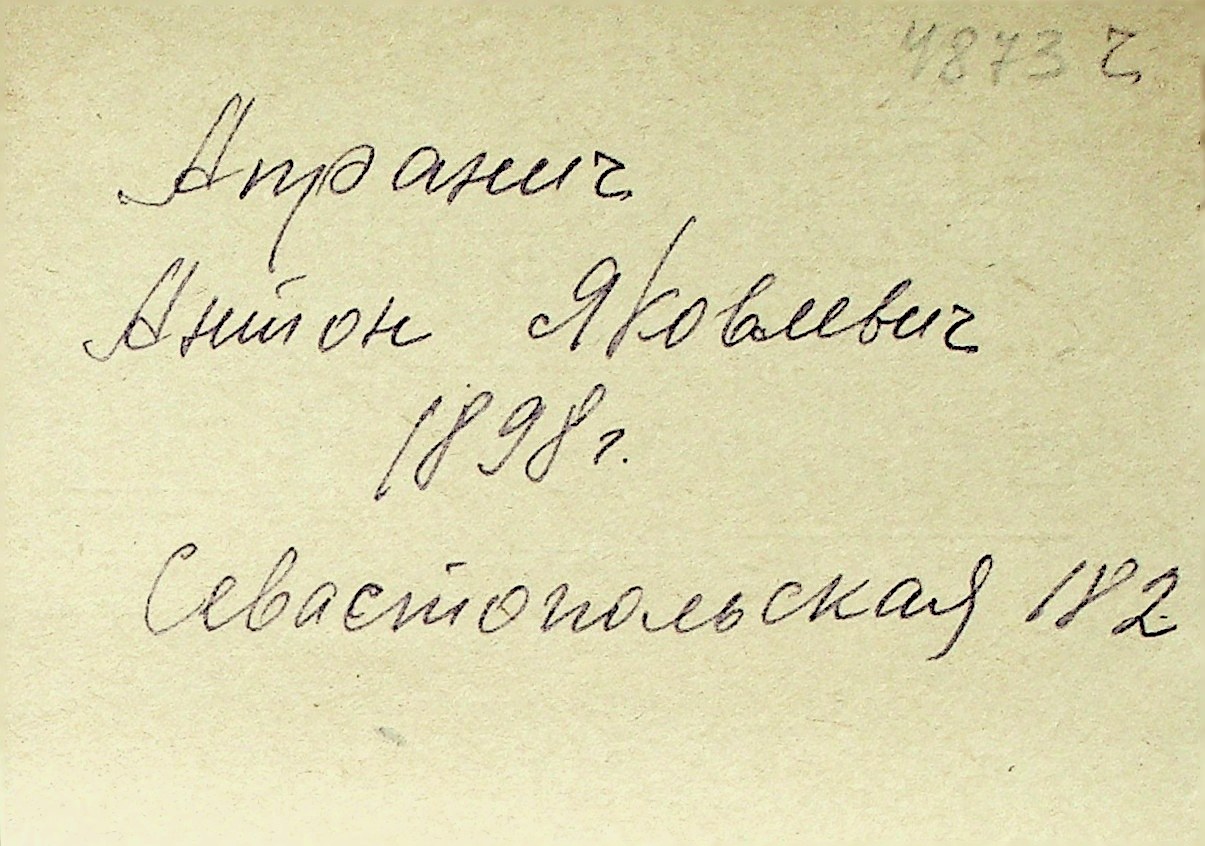 4873 ч
Апранич
Антон Яковлевич
1898 г.
Севастопольская 182